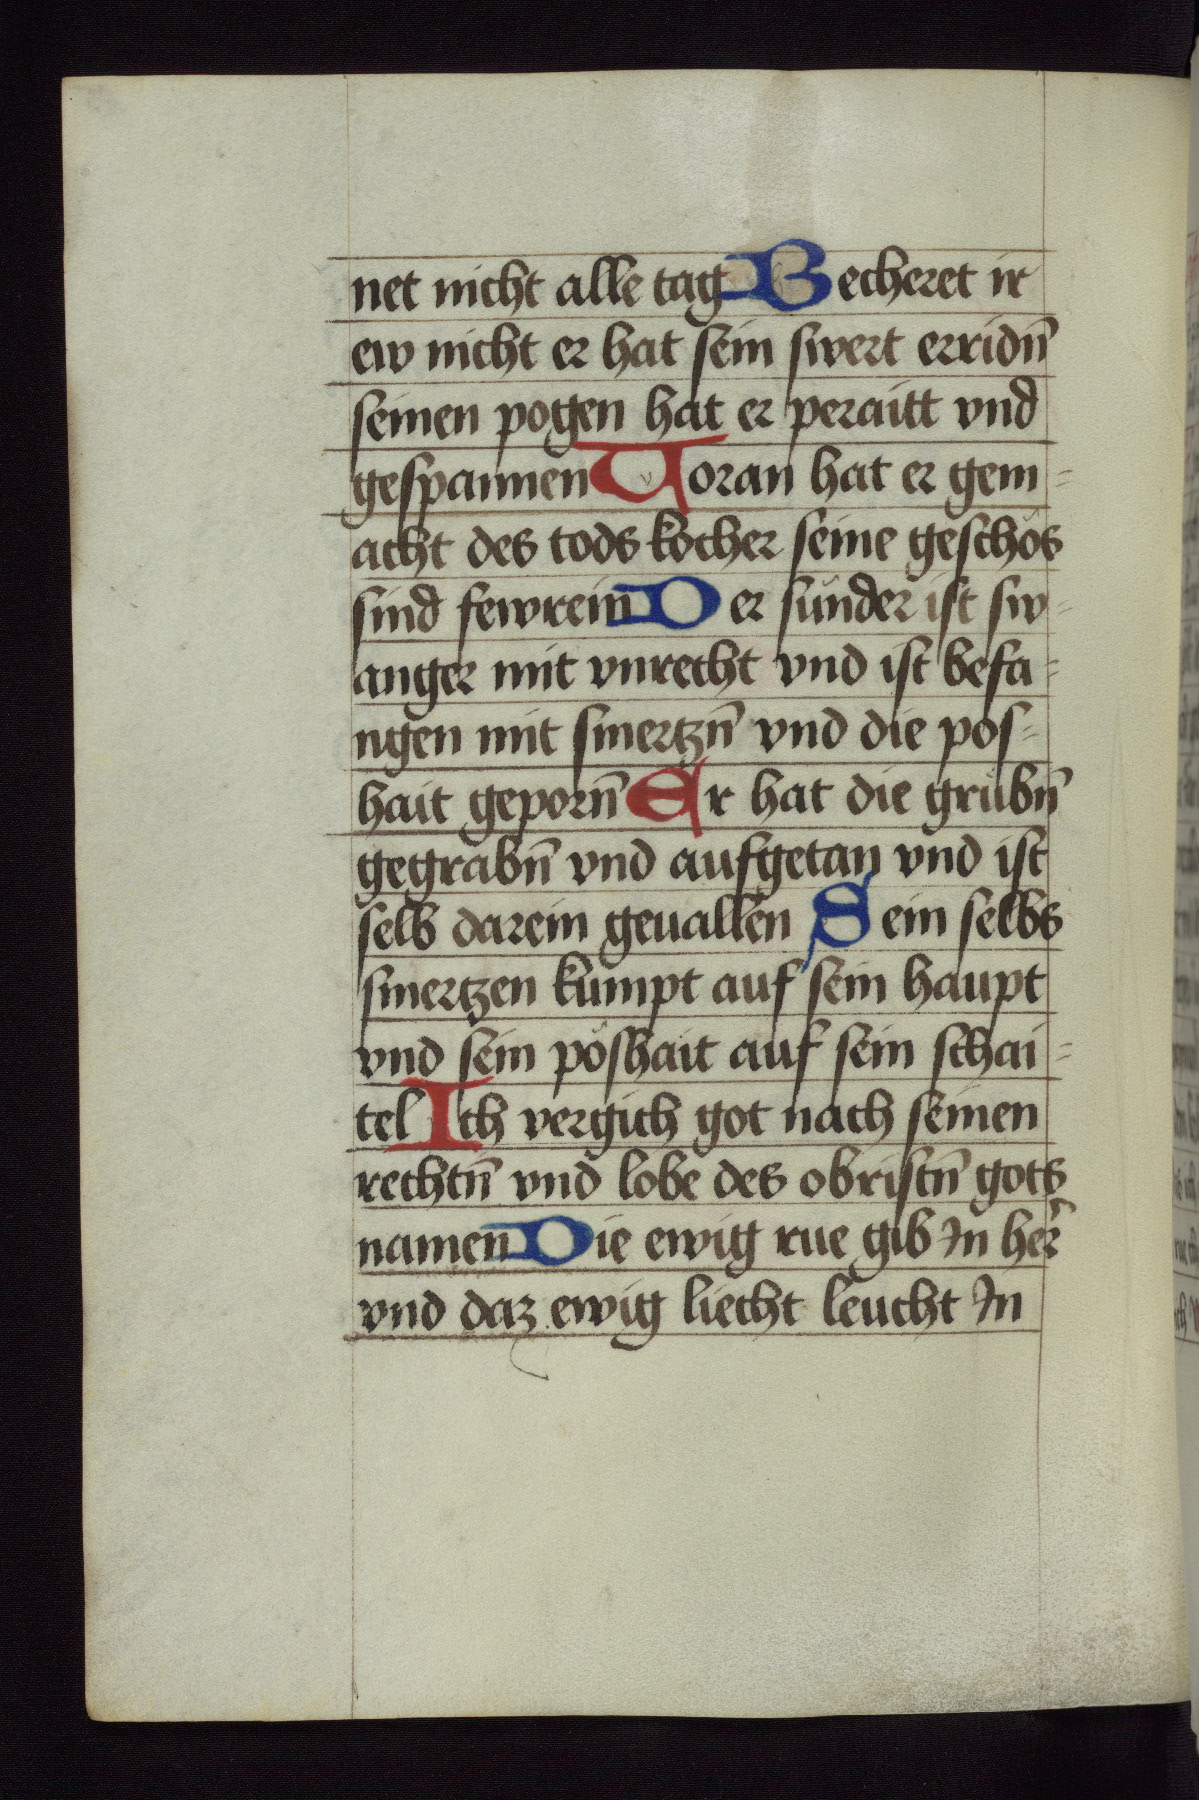 net nicht alle tag Becheret ir
ew nicht er hat sein swert erridn̄
seinen pogen hat er peraitt vnd
gespannen Voran hat er gem-
acht des tods kocher seine geschös
sind fewrein Der sünder ist sw-
anger mit vnrecht vnd ist befa-
ngen mit smertzn̄ vnd die pos-
hait geporn̄ Er hat die grübn̄
gegrabn̄ vnd aufgetan vnd ist
selb darein geuallen Sein selbs
smertzen kumpt auf sein haupt
vnd sein pöshait auf sein schai-
tel Ich vergich got nach seinen
rechtn̄ vnd lobe des obristn̄ gots
namen Die ewig rue gib In her̄
vnd daz ewig liecht leucht In